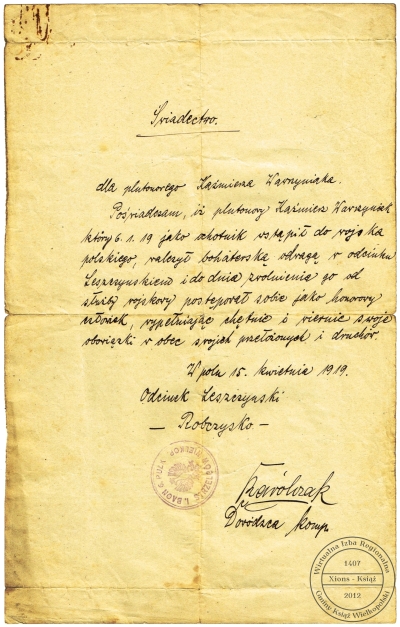 Świadectwo.
dla plutonowego Kaźmierza Warzyniaka.
Poświadczam, iż plutonowy Kaźmierz Warzyniak
który 6. 1. 19 jako ochotnik wstąpił do wojska
polskiego, walczył bohaterską odwagą w odcinku
Leszczyńskiem i do dnia zwolnienia go od
służby wojskowy postępował sobie jako honorowy
człowiek, wypełniając chętnie i wiernie swoje
obowiązki w obec swojich przełożonych i druchów.
W polu 15. kwietnia 1919.
Odcinek Leszczyński
— Robczysko —
Karólczak
Dowódzca komp.
Wirtualna Izba Regionalna
1407
Xions - Książ
2012
Gminy Książ Wielkopolski